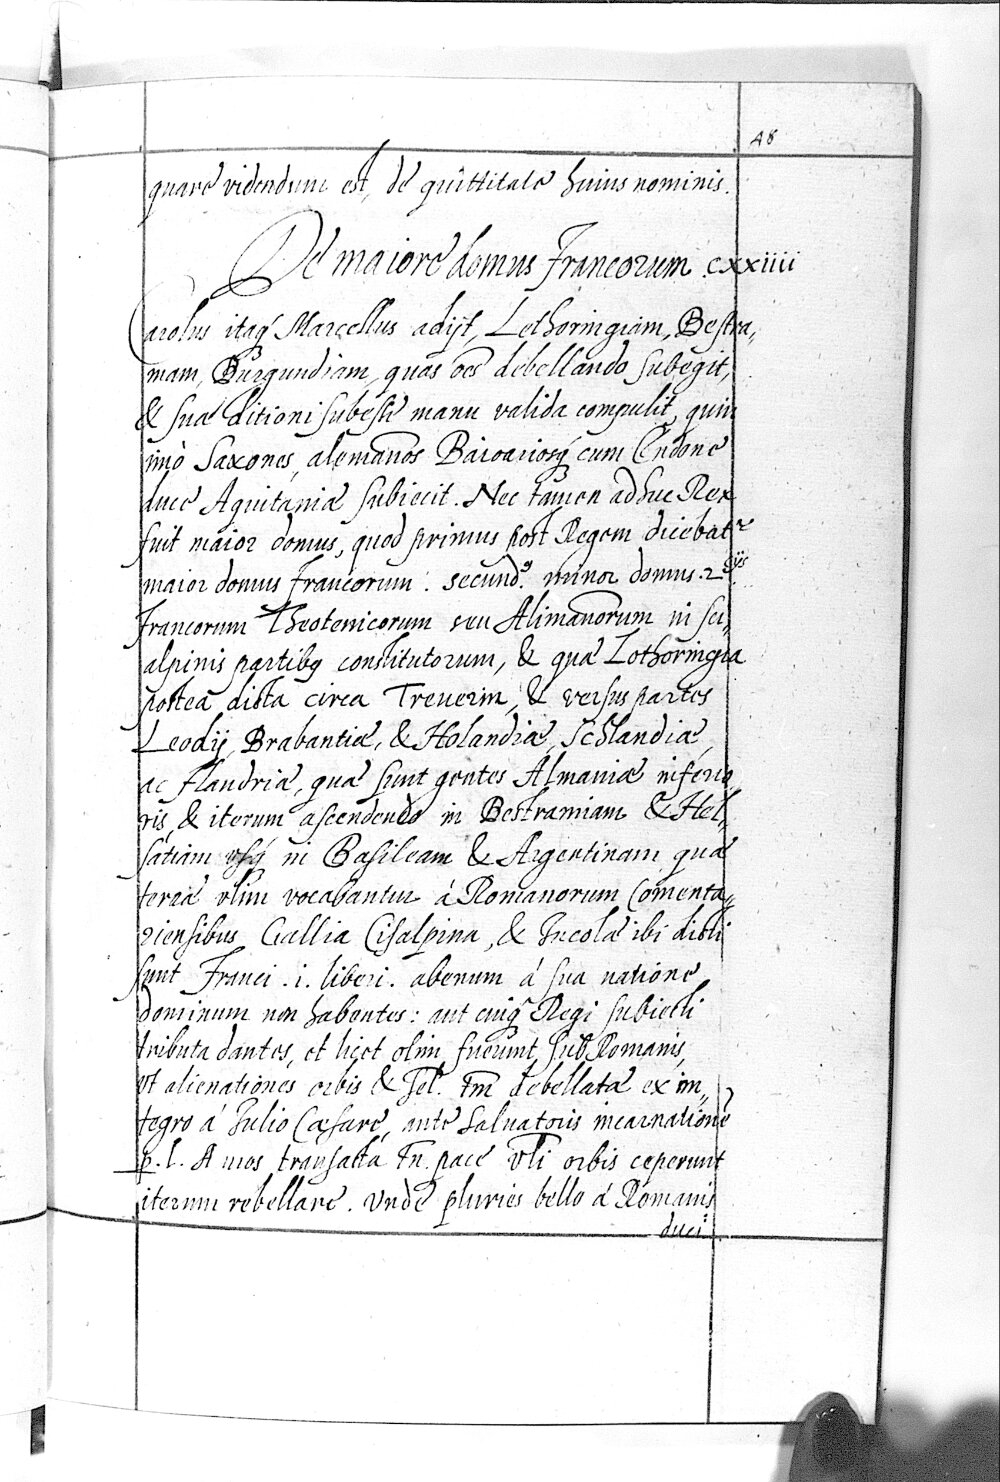 48
quare videndum est, de quittitate huius nominis.
De maiore domus Francorum cxxiiii
Carolus itaq́ Marcellus adijt, Lothoringiam, Bestra„
mam, Burgundiam, quas oēs debellando subegit,
& suæ ditioni subesse manu valida compulit, quin
imò Saxones, alemanos Baioariosq́ cum Endone
duce Aquitaniæ subiecit. Nec tamen adhuc Rex
fuit maior domus, quod primus post Regem dicebatʳ
maior domus francorum. secundꝰ. minor domus.
francorum Theotenicorum seu Alimanorum in sci„
alpinis partibꝫ constitutorum, & quæ Lothoringia
postea dicta circa Treuerim, & versus partes
Leodij, Brabantiæ, & Holandiæ, Schlandiæ,
ac flandriæ, quæ sunt gentes Almaniæ inferio„
ris, & iterum ascendendo in Bestramiam & Hel„
satiam usq́ in Basileam & Argentinam quæ
terræ olim vocabantur á Romanorum Comenta„
riensibus Gallia Cisalpina, & Incolæ ibi dicti
sunt Franci .i. liberi. abenum á sua natione
dominum non habentes: aut cuiq́ Regi subiecti
tributa dantes, et licet olim fuerint sub Romanis,
vt alienationes orbis & sel. tm̄ debellatæ ex in„
tegro á Iulio Cæsare, ante Saluatoris incarnationē
p. l. Annos transacta tn̄. pace vlī orbis ceperunt
iterum rebellare. vnde pluries bello á Romanis
duci: